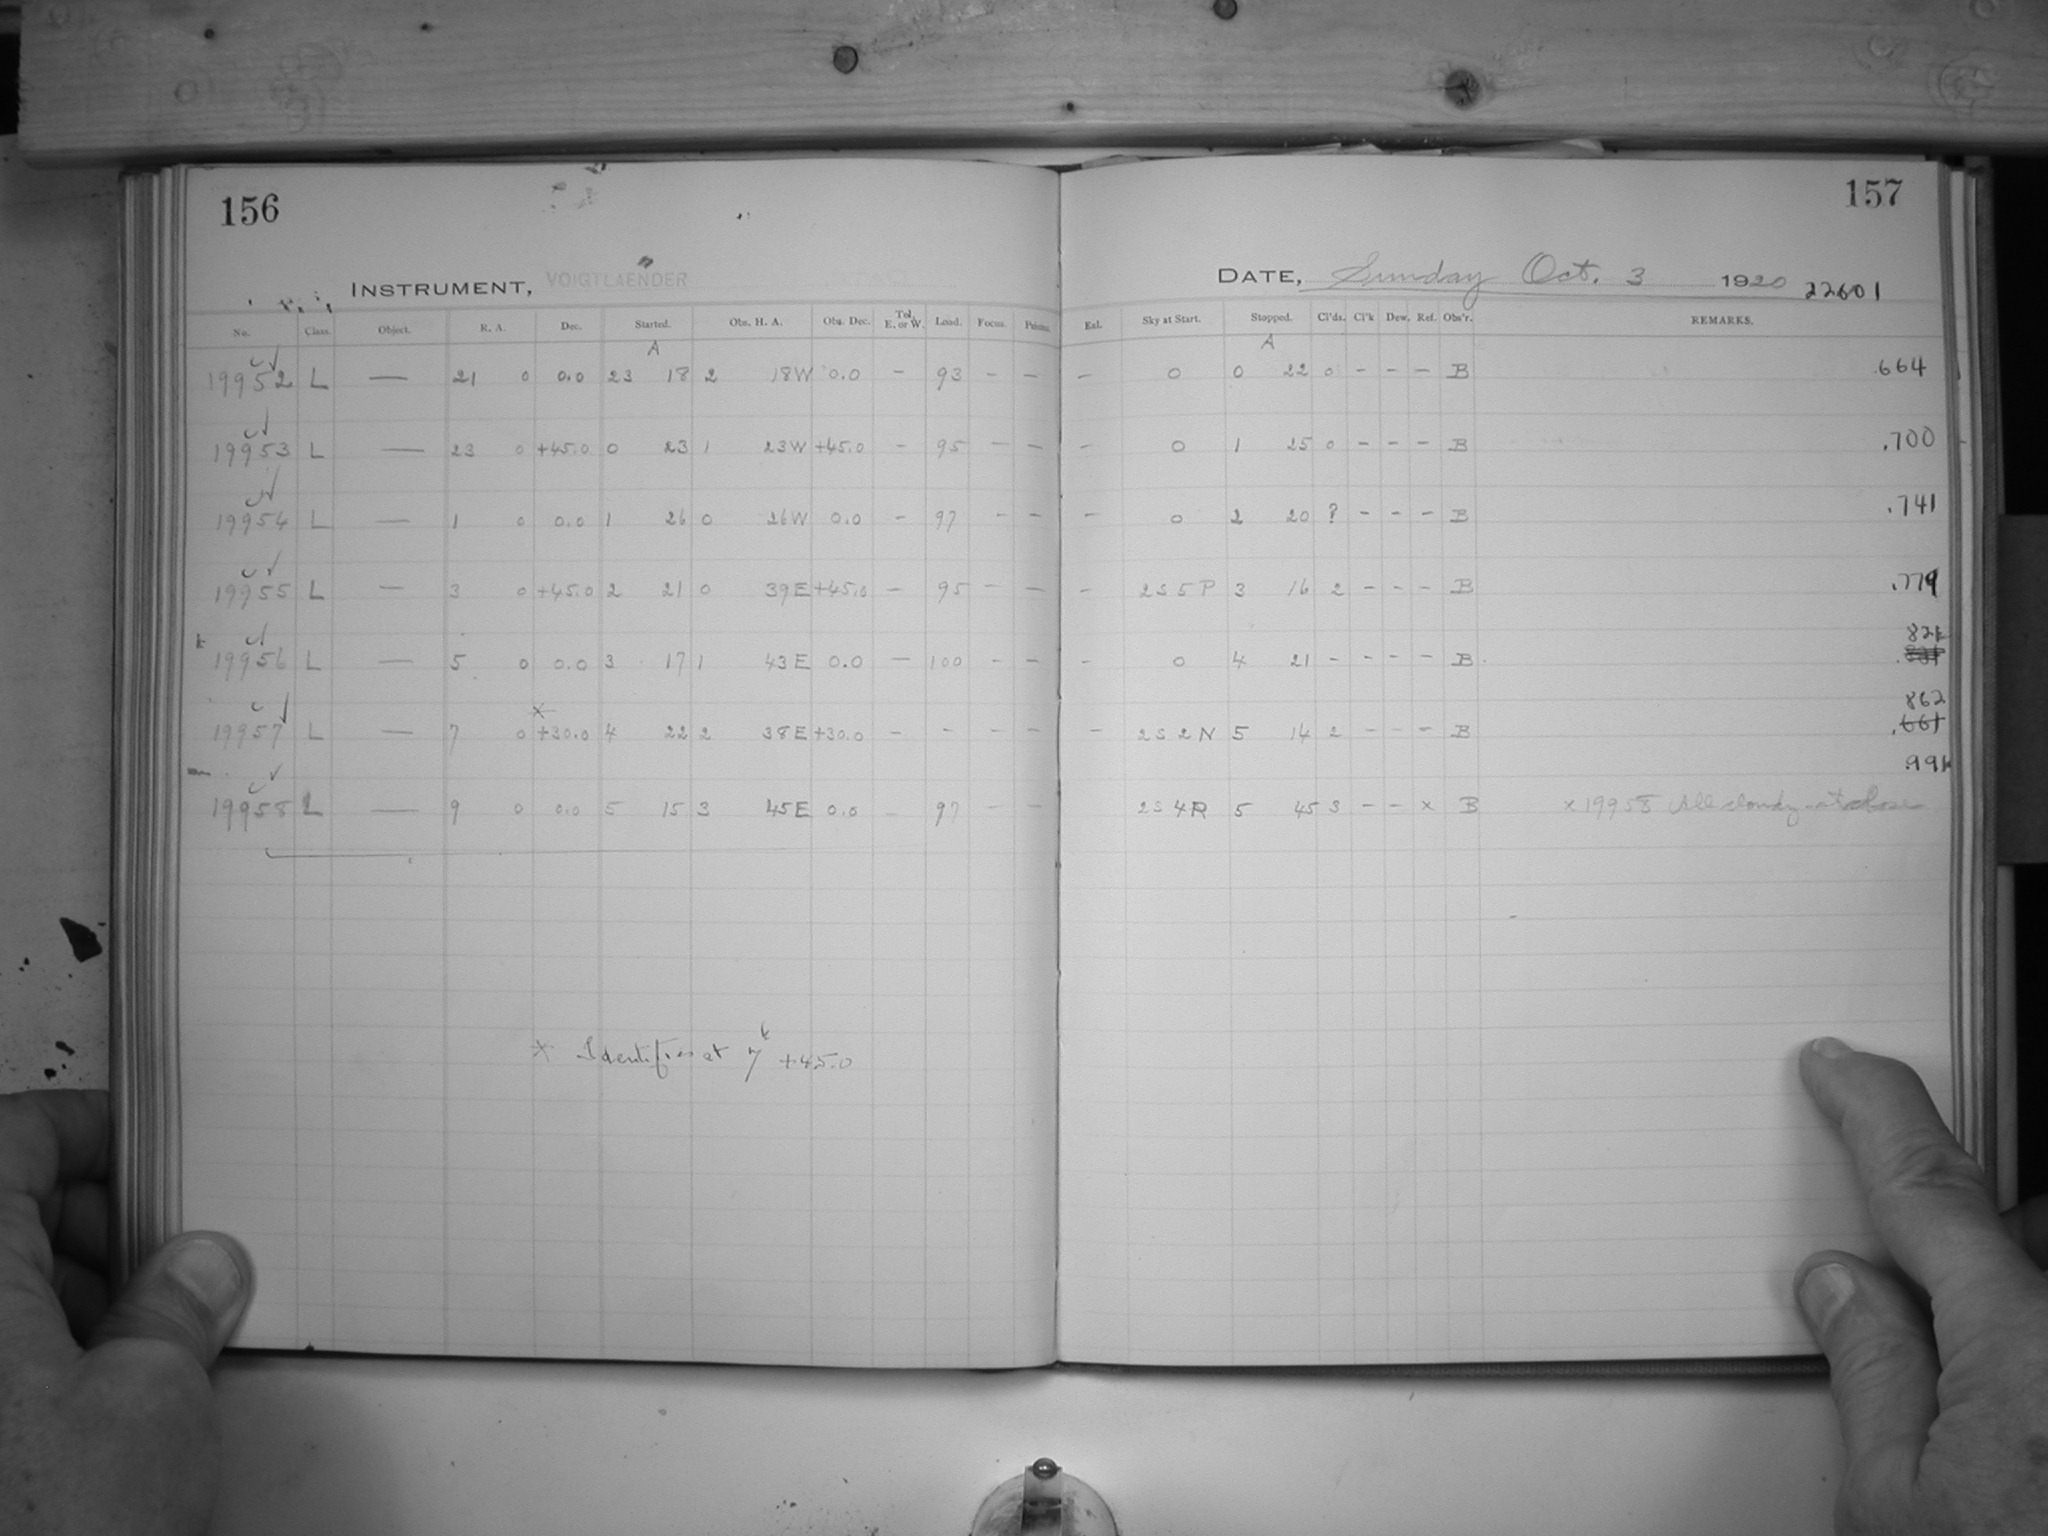 156
157
INSTRUMENT, VOIGTLAENDER
DATE, Sunday Oct. 3 1920 22601
No. Class. Object. R. A. Dec. Started. Obs. H. A. Obs. Dec. Tel. E. or W. Load. Focus. Prisms. Eal. Sky at Start. Stopped. Cl'ds. Cl'k Dew. Ref. Obs'r. REMARKS.
A A
19952 L — 21 0 0.0 23 18 2 18W 0.0 - 93 - - - 0 0 22 0 - - - B .664
19953 L — 23 0 +45.0 0 23 1 23W +45.0 - 95 - - - 0 1 25 0 - - - B .700
19954 L — 1 0 0.0 1 26 0 26W 0.0 - 97 - - - 0 2 20 ? - - - B .741
19955 L — 3 0 +45.0 2 21 0 39E +45.0 - 95 - - - 2S5P 3 16 2 - - - B .779
821
19956 L — 5 0 0.0 3 17 1 43E 0.0 - 100 - - - 0 4 21 - - - - B
862
19957 L — 7 0 +30.0 4 22 2 38E +30.0 - - - - - 2S2N 5 14 2 - - - B .661
.991
19958 L — 9 0 0.0 5 15 3 45E 0.0 - 97 - - 2S4R 5 45 3 - - x B x 19958 All cloudy at close
* Identifies at 7h +45.0